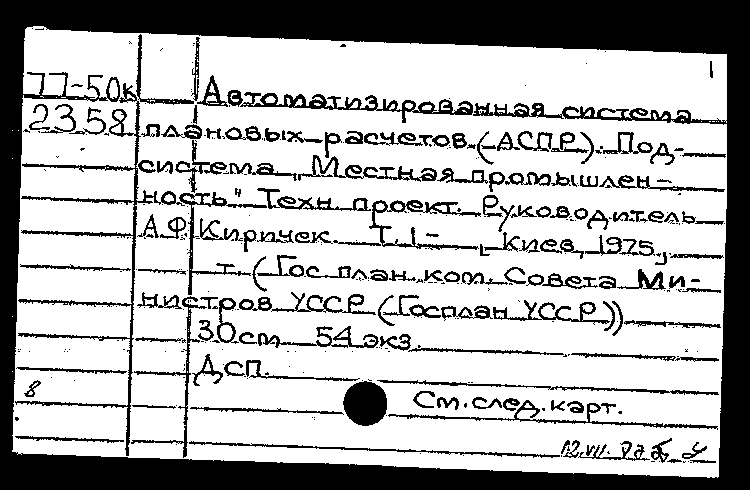 1
П-50к Автоматизированная система
2358 плановых расчетов (АСПР). Под-
система „Местная промышлен-
ность" Техн. проект. Руководитель
А.Ф. Киричек. Т. 1- , Киев, 1975,
т. (Гос. план. ком. Совета Ми-
нистров УССР (Госплан УССР))
30см 54 экз.
Дсп.
8
См. след. карт.
12.VII.